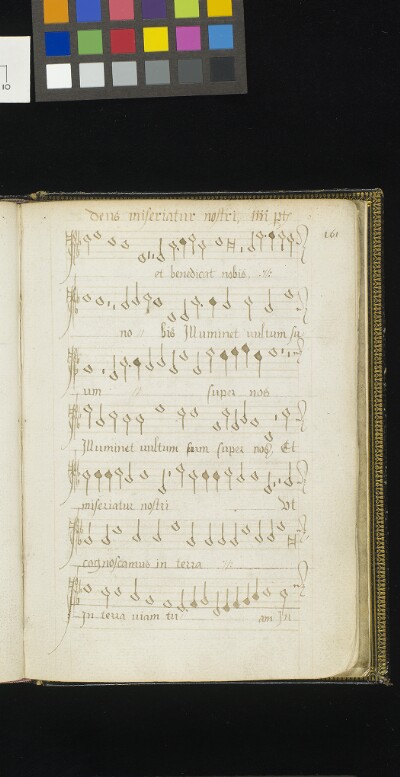 Deus miseriatur nostri, iiii pts
161
et benedicat nobis
no bis Illuminet vultum su
um super nos
Illuminet vultum suum super nos, Et
miseriatur nostri Vt
cognoscamus in terra
In terra viam tu am In